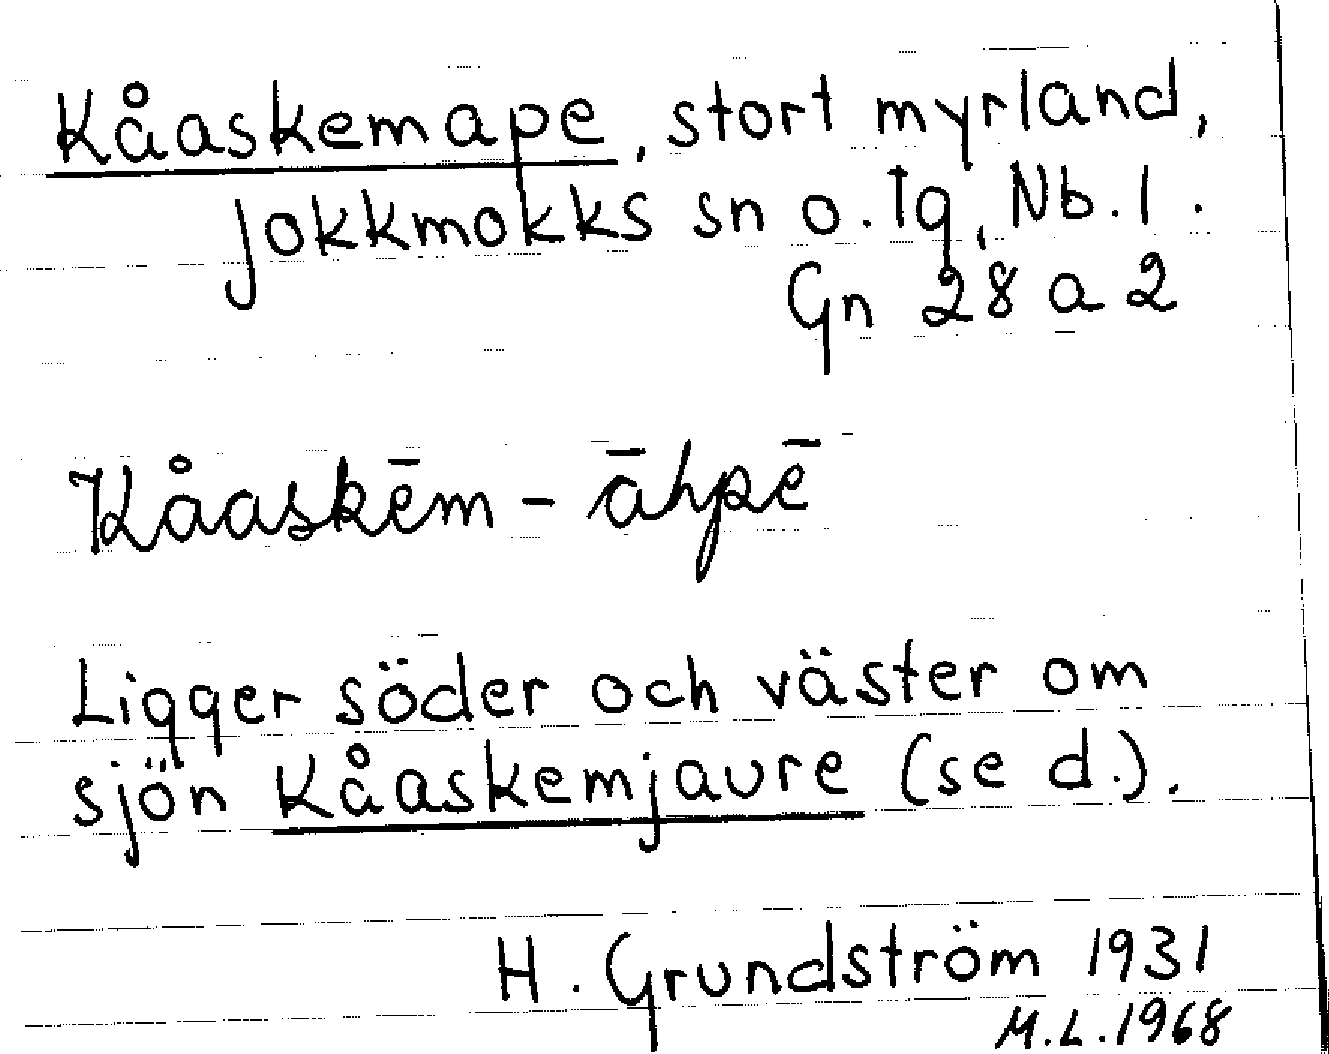 Kåaskemape, stort myrland,
Jokkmokks sn o. tg, Nb. l.
Gn 28 a 2
Kåaskēm-āhpē
Ligger söder och väster om
sjön Kåaskemjaure (se d.).
H. Grundström 1931
M.L. 1968